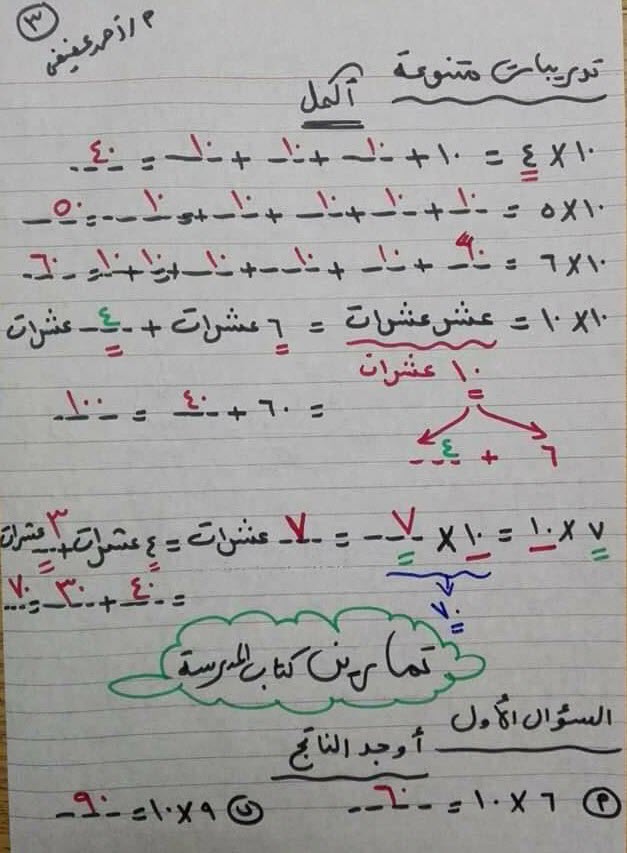 ٣
م / أحمد عفيفي
تدريبات متنوعة
أكمل
١٠ × ٤ = ١٠ + ١٠ + ١٠ + ١٠ = ٤٠
١٠ × ٥ = ١٠ + ١٠ + ١٠ + ١٠ + ١٠ = ٥٠
١٠ × ٦ = ١٠ + ١٠ + ١٠ + ١٠ + ١٠ + ١٠ = ٦٠
١٠ × ١٠ = عشر عشرات = ٦ عشرات + ٤ عشرات
١٠ عشرات
= ٦٠ + ٤٠ = ١٠٠
٦ + ٤
٧ × ١٠ = ١٠ × ٧ = ٧ عشرات = ٤ عشرات + ٣ عشرات
= ٤٠ + ٣٠ = ٧٠
٧٠
تمارين كتاب المدرسة
السؤال الأول
أوجد الناتج
٦ × ١٠ = ٦٠
٩ × ١٠ = ٩٠